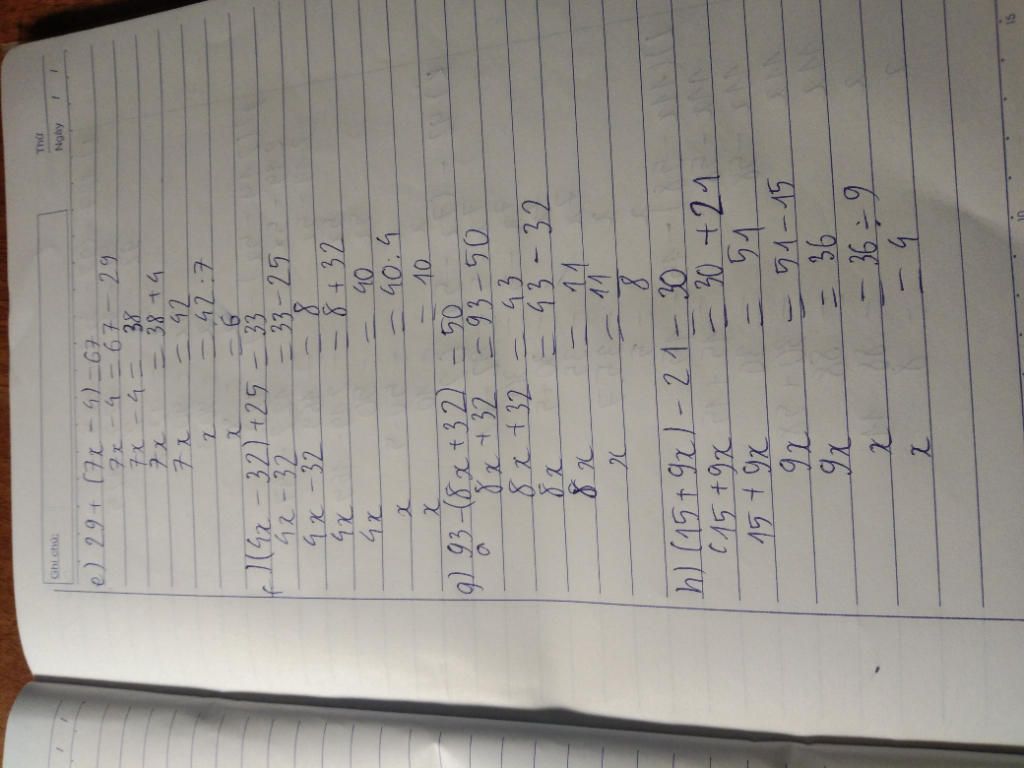 Thứ
Ngày / /
Ghi chú:
e) 29 + (7x - 4) = 67
7x - 4 = 67 - 29
7x - 4 = 38
7x = 38 + 4
7x = 42
x = 42 : 7
x = 6
f) (4x - 32) + 25 = 33
4x - 32 = 33 - 25
4x - 32 = 8
4x = 8 + 32
4x = 40
x = 40 : 4
x = 10
g) 93 - (8x + 32) = 50
8x + 32 = 93 - 50
8x + 32 = 43
8x = 43 - 32
8x = 11
x = 11
8
h) (15 + 9x) - 21 = 30
(15 + 9x = 30 + 21
15 + 9x = 51
9x = 51 - 15
9x = 36
x = 36 ÷ 9
x = 4
10
15